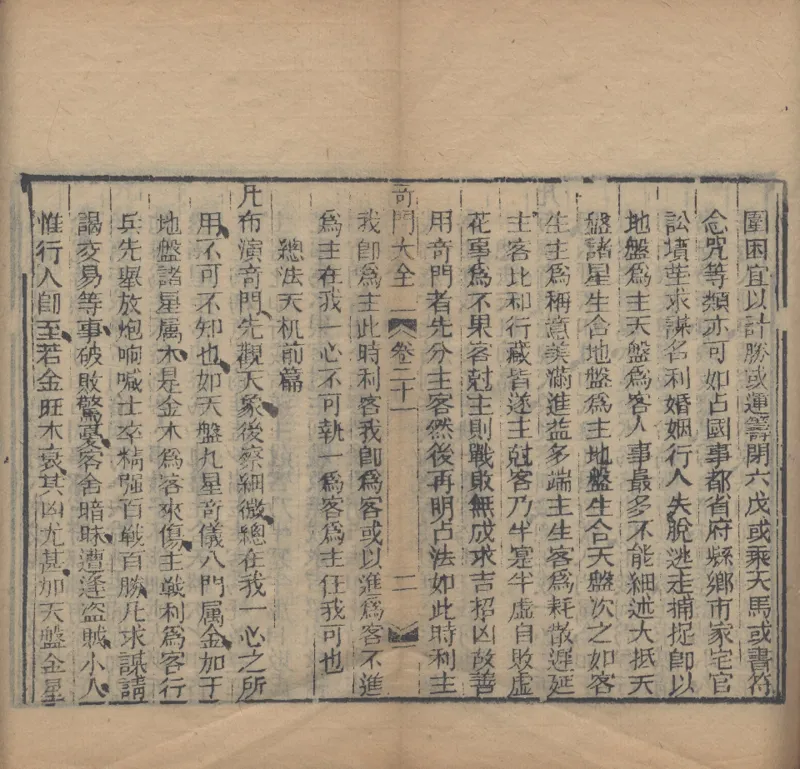 圍困宜以計勝或運籌閉六戊或乘天馬或書符
念咒等類亦可如占國事都省府縣鄉市家宅官
訟墳茔求謀名利婚姻行人失脫逃走捕捉卽以
地盤為主天盤為客人事最多不能細述大抵天
盤諸星生合地盤為主地盤生合天盤次之如客
生主為稱意美滿進益多端主生客為耗散遲延
主客比和行藏皆遂主尅客乃半寔半虛自敗虛
花事為不果客尅主則戰敗無成求吉招凶故善
用奇門者先分主客然後再明占法如此時利主
我卽為主此時利客我卽為客或以進為客不進
為主在我一心不可執一為客為主任我可也
奇門大全 卷二十一 二
總法天机前篇
凡布演奇門先觀天象後察細微總在我一心之所
用不可不知也如天盤九星奇儀八門属金加于
地盤諸星属木是金木為客來傷主戰利為客行
兵先舉放炮响喊士卒精强百戦百勝凡求謀請
謁交易等事破敗驚憂客舍暗昧遭逢盗賊小人
惟行人卽至若金旺木衰其凶尤甚加天盤金星